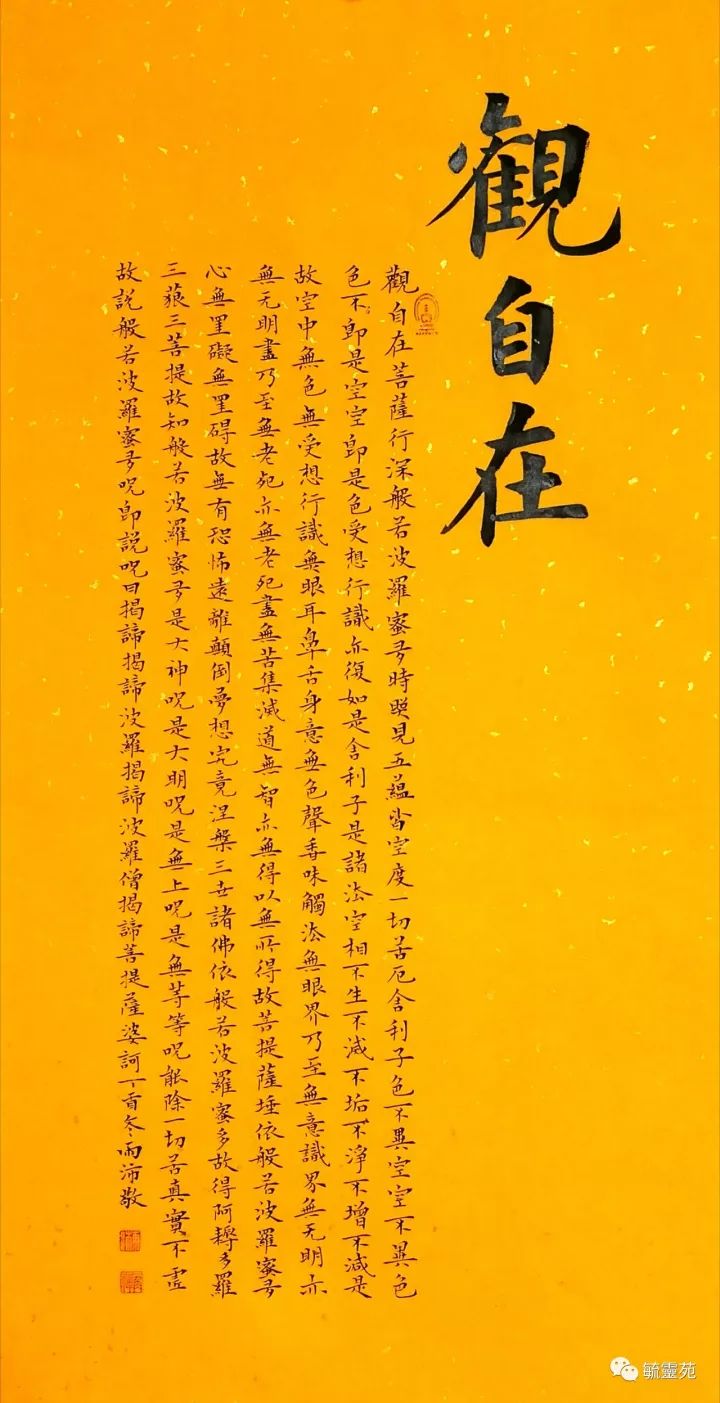 觀自在
觀自在菩薩行深般若波羅蜜多時照見五蘊皆空度一切苦厄舍利子色不異空空不異色
色不即是空空即是色受想行識亦復如是舍利子是諸法空相不生不滅不垢不淨不增不減是
故空中無色無受想行識無眼耳鼻舌身意無色聲香味觸法無眼界乃至無意識界無无明亦
無无明盡乃至無老死亦無老死盡無苦集滅道無智亦無得以無所得故菩提薩埵依般若波羅蜜多
心無罣礙無罣碍故無有恐怖遠離顛倒夢想究竟涅槃三世諸佛依般若波羅蜜多故得阿耨多羅
三藐三菩提故知般若波羅蜜多是大神呪是大明呪是無上呪是無等等呪能除一切苦真實不虛
故說般若波羅蜜多呪即說呪曰揭諦揭諦波羅揭諦波羅僧揭諦菩提薩婆訶丁酉冬雨沛敬
毓靈苑